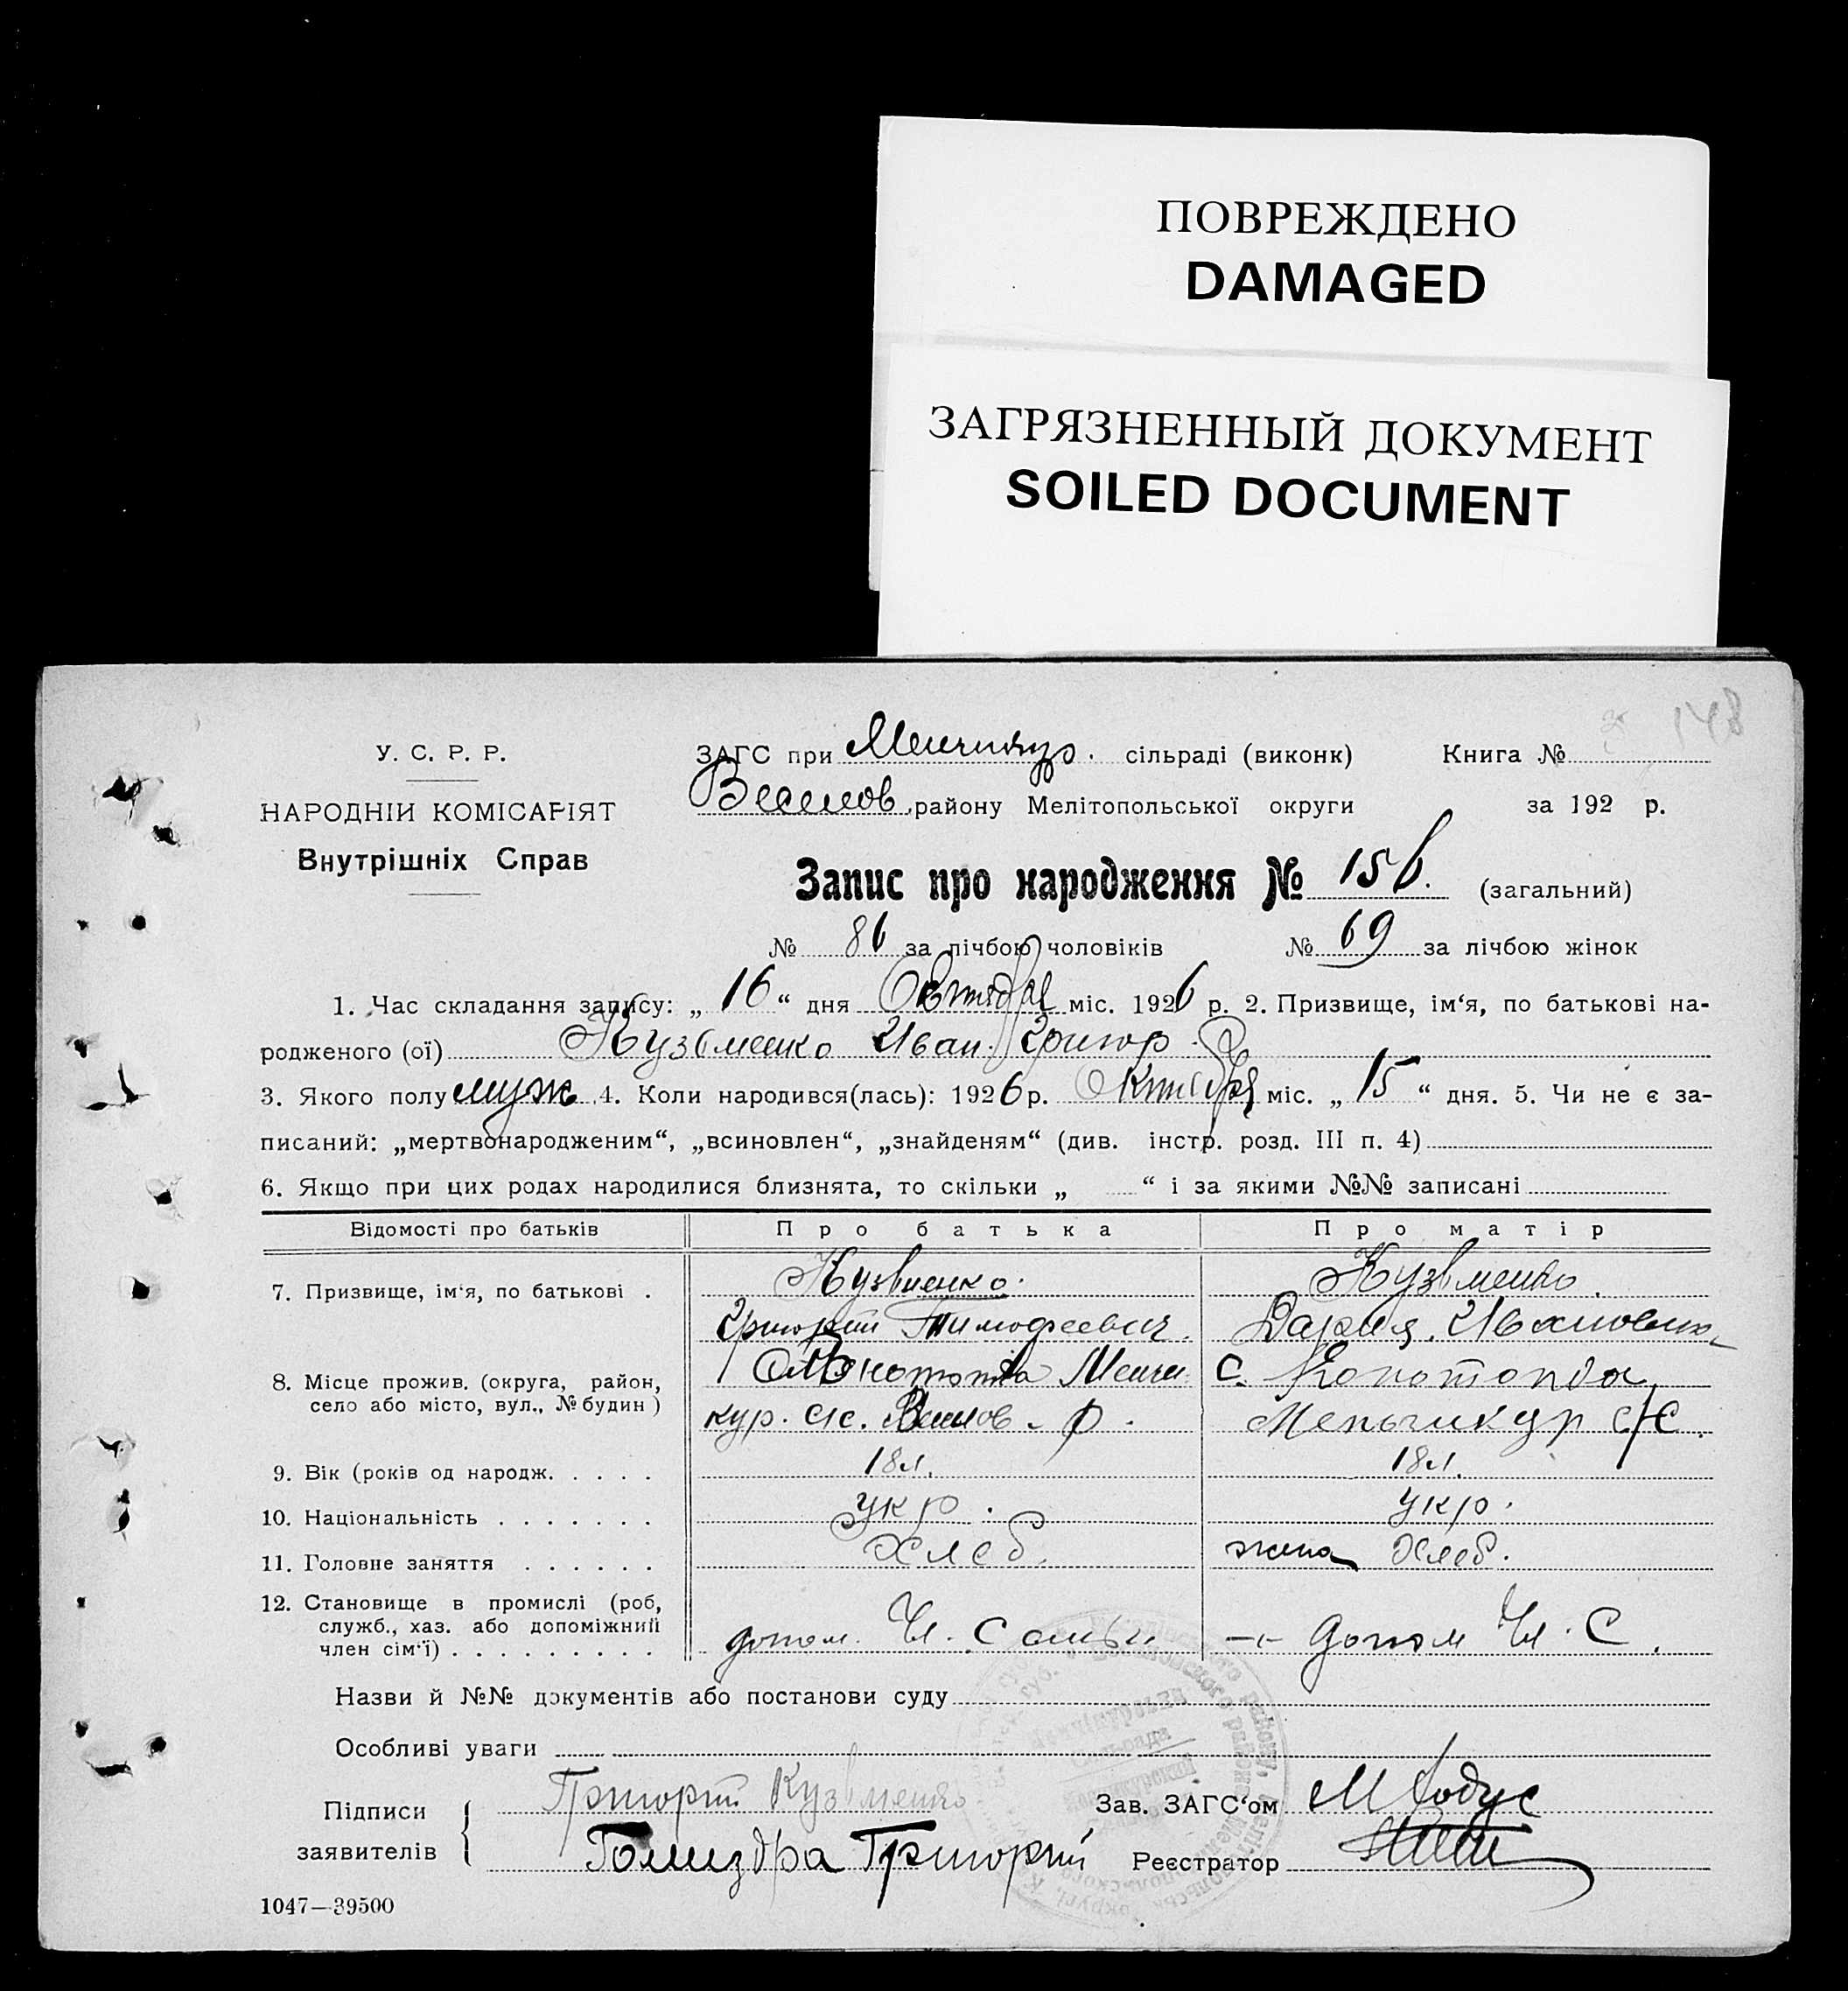 ПОВРЕЖДЕНО
DAMAGED
ЗАГРЯЗНЕННЫЙ ДОКУМЕНТ
SOILED DOCUMENT
148
У. С. Р. Р.
НАРОДНІЙ КОМІСАРІЯТ
Внутрішніх Справ
ЗАГС при Менчикур. сільраді (виконк) Книга №
Веселов. району Мелітопольської округи за 192 р.
Запис про народження № 156. (загальний)
№ 86 за лічбою чоловіків № 69 за лічбою жінок
1. Час складання запису: „ 16 “ дня Октября міс. 1926 р. 2. Призвище, ім‘я, по батькові на-
родженого (ої) Кузьменко Иван. Григор.
3. Якого полу муж 4. Коли народився(лась): 1926 р. Октября міс. „ 15 “ дня. 5. Чи не є за-
писаний: „мертвонародженим“, „всиновлен“, „знайденям“ (див. інстр. розд. III п. 4)
6. Якщо при цих родах народилися близнята, то скільки „ “ і за якими №№ записані
Відомості про батьків Про батька Про матір
7. Призвище, ім‘я, по батькові . Кузьменко. Кузьменко.
Григорій Тимофеевич. Дария. Ивановна
8. Місце прожив. (округа, район, село або місто, вул., № будин) Конотопка Менчи С. Конотопка
кур. с/с. Веселов. р. Меньчикур с/с.
9. Вік (років од народж. . . . . 18 л. 18 л.
10. Національність . . . . . . . укр. укр.
11. Головне заняття . . . . . . Хлеб. жена Хлеб.
12. Становище в промислі (роб,
служб., хаз. або допоміжний
член сім‘ї) . . . . . . . . . допом. Чл. Семьи -"- допом Чл. С.
Назви й №№ документів або постанови суду
Особливі уваги
Підписи заявителів { Григорій Кузьменко Зав. ЗАГС‘ом
Григорий Реєстратор
1047—39500